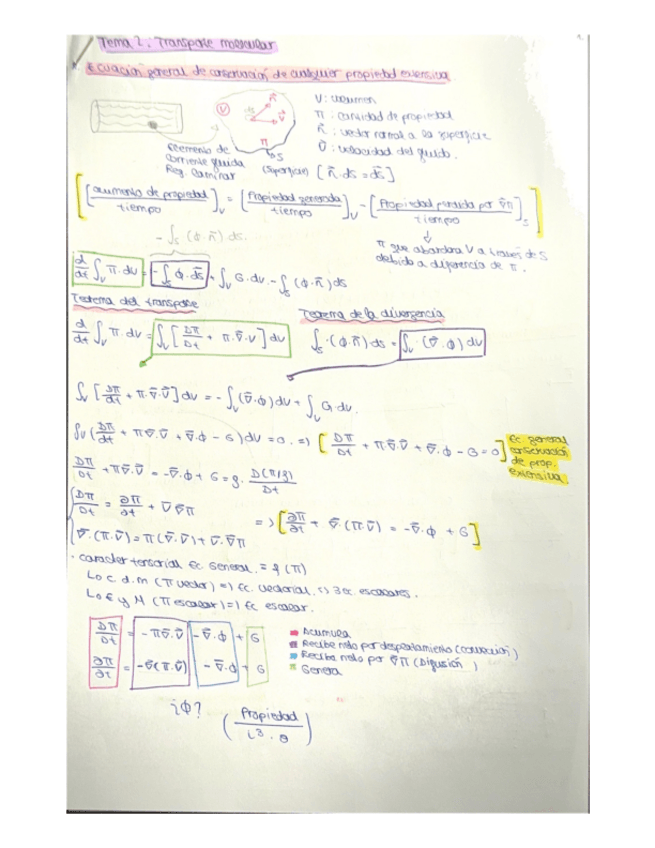 Tema 2: Transporte molecular
1.
Ecuación general de conservación de cualquier propiedad extensiva
V: volumen
π: cantidad de propiedad
n⃗: vector normal a la superficie
v⃗: velocidad del fluido.
Elemento de corriente fluida
Reg. laminar
(superficie) [n⃗·ds = ds⃗]
[[aumento de propiedad / tiempo]_V = [Propiedad generada / tiempo]_V − [Propiedad perdida por ∇⃗π / tiempo]_S]
− ∫_S (φ·n⃗) ds.
π que abandona V a través de S
debido a diferencia de π.
d/dt ∫_V π·dv = − ∫_S φ·ds⃗ + ∫_V G·dv − ∫_S (φ·n⃗) ds
Teorema del transporte
Teorema de la divergencia
d/dt ∫_V π·dv = ∫_V [Dπ/Dt + π·∇⃗·v] dv
∫_S (φ·n⃗) ds = ∫_V (∇⃗·φ) dv
∫_V [Dπ/Dt + π·∇⃗·v⃗] dv = − ∫_V (∇⃗·φ) dv + ∫_V G·dv.
∫_V (Dπ/Dt + π∇⃗·v⃗ + ∇⃗·φ − G) dv = 0. => [Dπ/Dt + π∇⃗·v⃗ + ∇⃗·φ − G = 0]
Ec. general
conservación
de prop.
extensiva.
Dπ/Dt + π∇⃗·v⃗ = −∇⃗·φ + G = ρ· D(π/ρ)/Dt
Dπ/Dt = ∂π/∂t + v⃗∇⃗π
∇⃗·(π·v⃗) = π(∇⃗·v⃗) + v⃗·∇⃗π
=> [∂π/∂t + ∇⃗·(π·v⃗) = −∇⃗·φ + G]
· carácter tensorial Ec. General = f(π)
↳ c.d.m (π vector) => Ec. vectorial => 3 ec. escalares.
↳ E y M (π escalar) => Ec. escalar.
Dπ/Dt = −π∇⃗·v⃗ − ∇⃗·φ + G
∂π/∂t = −∇⃗(π·v⃗) − ∇⃗·φ + G
Acumula
Recibe neto por desplazamiento (convección)
Recibe neto por ∇⃗π (Difusión)
Genera
¿φ?
(Propiedad / L³·θ)